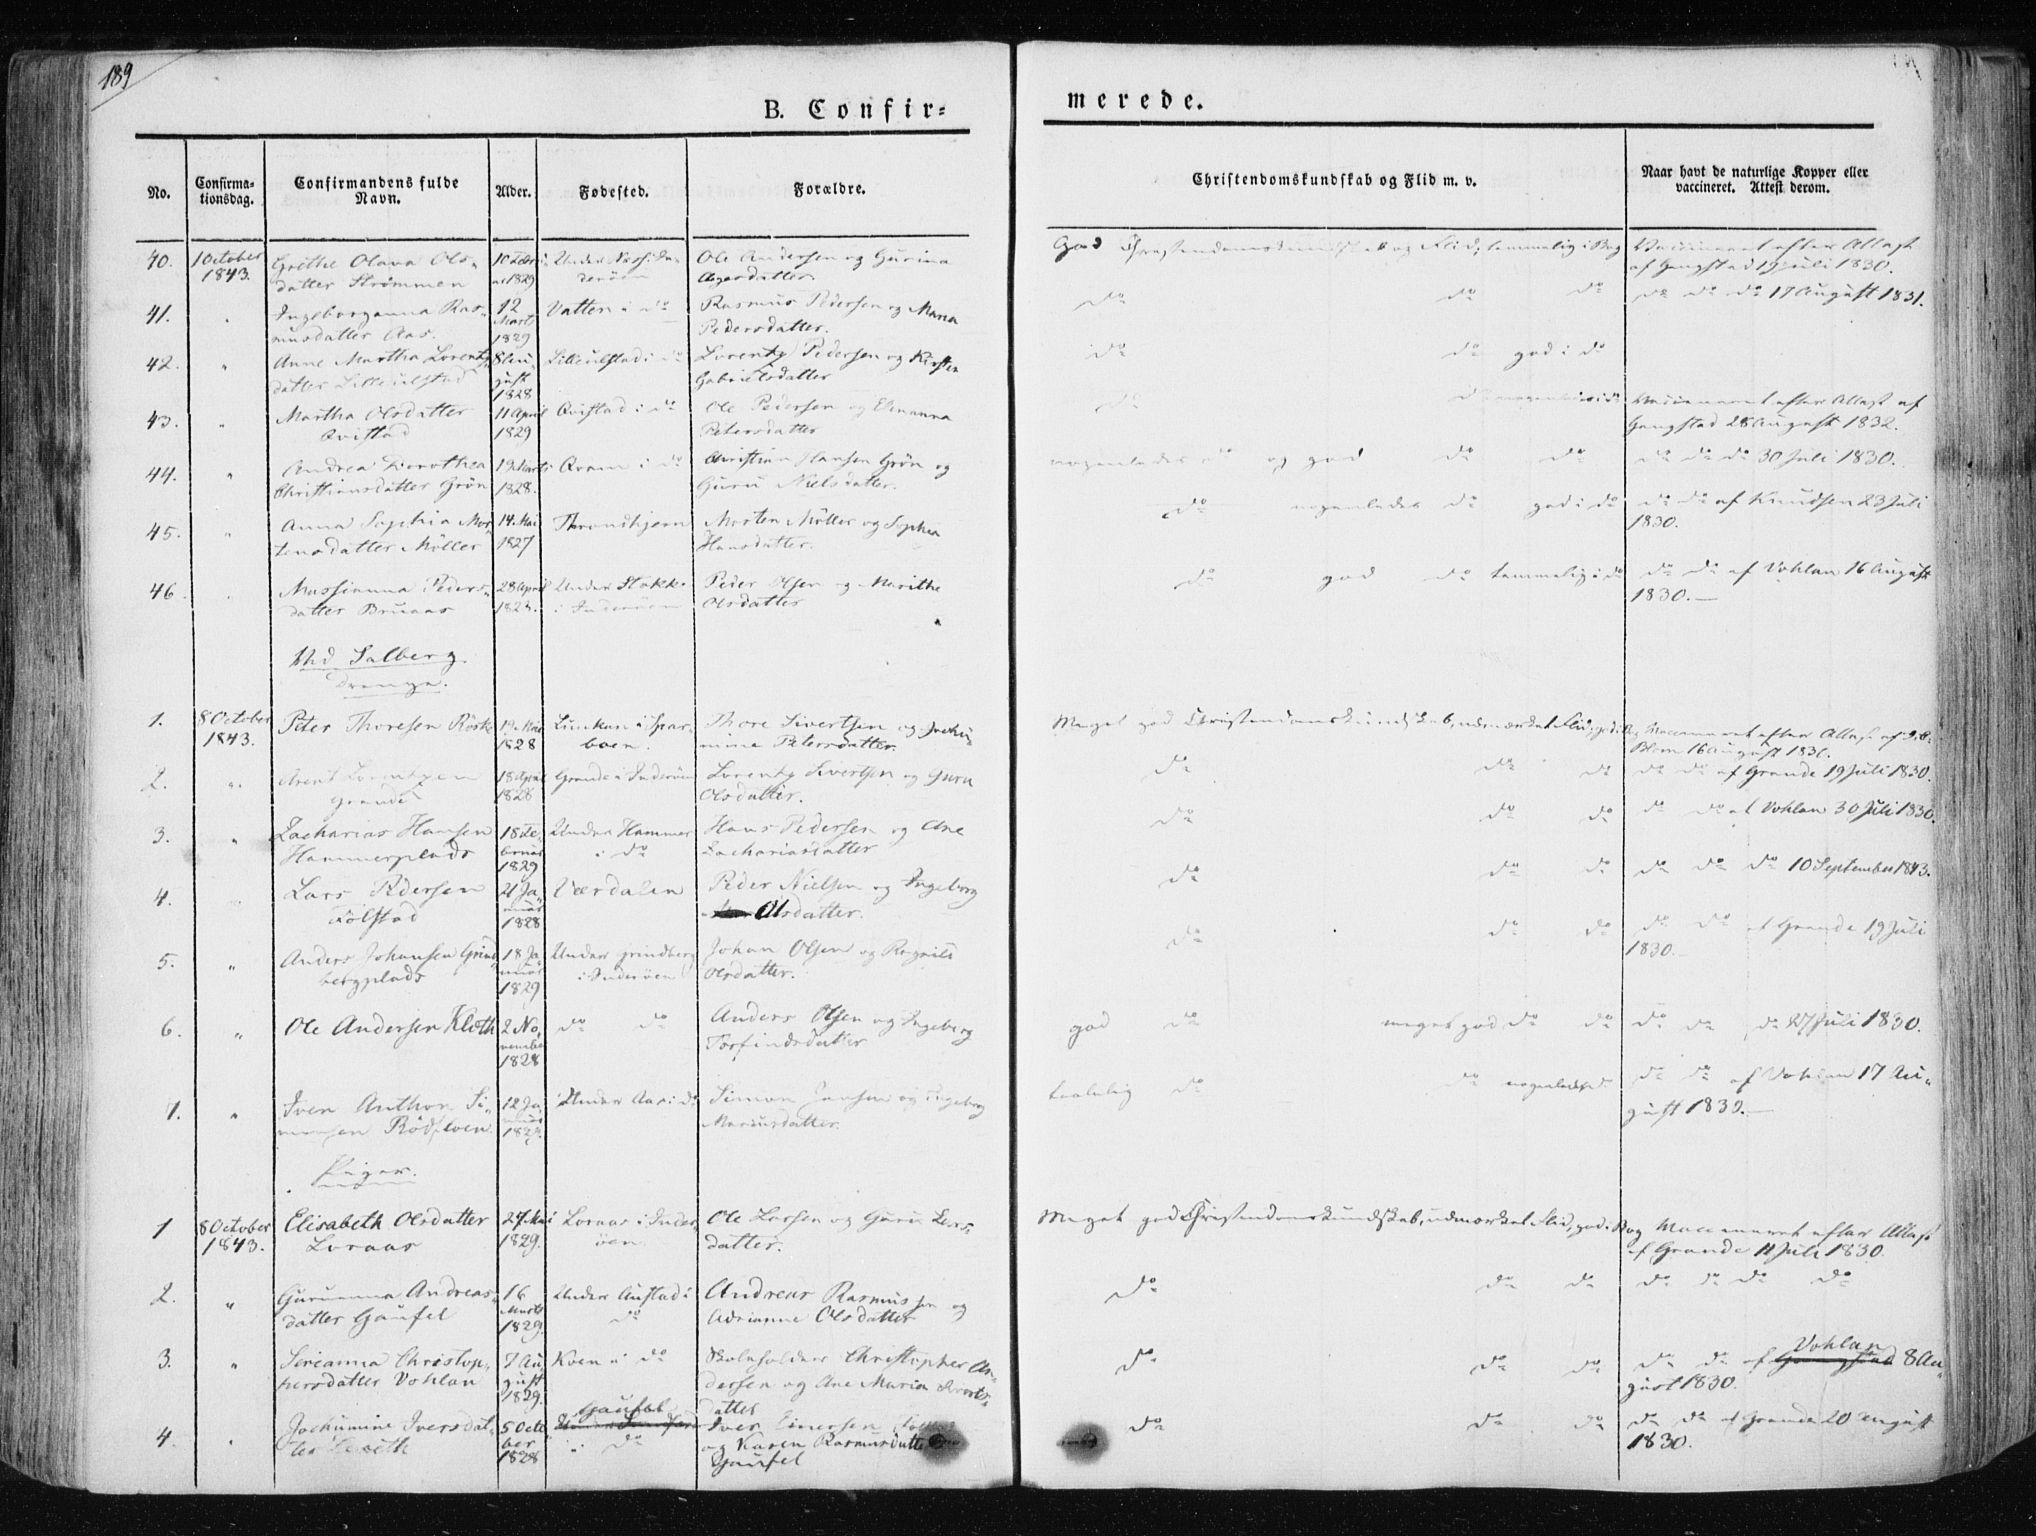 189
B. Confir=
merede.
No.
Confirma-
tionsdag.
Confirmandens fulde
Navn.
Alder.
Fødested.
Forældre.
Christendomskundskab og Flid m. v.
Naar havt de naturlige Kopper eller
vaccineret. Attest derom.
40. 1 October
1843.
Grethe Olava Ols-
datter Strømmen
1829
Under
Ole Andersen og Gurina
God Christendomskundskab og Flid, temmelig i Bog
Vaccineret efter Attest
af Gangstad 19 Juli 1830.
41. " Ingeborganna Ras-
musdatter Aas.
12
Marts
1829
Vatten i do
Rasmus Pedersen og Maria
Pedersdatter.
do do do
do do do 17 August 1831.
42. " Anne Martha Lorentz-
datter Lilleulstad
8 Au-
gust
1828
Lilleulstad i do
Lorentz Pedersen og Kirsten
Gabrielsdatter
do do god i do
43. " Martha Olsdatter
Qvistad
11 April
1829
Qvistad i do
Ole Pedersen og Elenanna
Petersdatter
do do
Vaccineret efter Attest af
Gangstad 28 August 1832.
44. " Andrea Dorothea
Christiansdatter Grøn
19 Marts
1828.
Qvam i do
Christian Hansen Grøn og
Guru Nielsdatter.
nogenledes do og god do do
do do do 30 Juli 1830.
45. " Anna Sophia Mor-
tensdatter Møller
14. Mai
1827
Throndhjem
Morten Møller og Sophia
Hansdatter.
do nogenledes do god i do
do do af Knudsen 23 Juli
1830.
46. " Massianna Peders-
datter Bruaas
28 April
Under Stokke
i Inderøen
Peder Olsen og Marithe
Olsdatter
do god do temmelig i do
do do af Vohlan 16 August
1830.
Ved Salberg
Drenge.
1. 8 October
1843.
Peter Thoresen Røske
19. Mai
1828
i Spar-
boen.
Thore Sivertsen og Jocku-
mine Petersdatter.
Meget god Christendomskundskab, udmærket Flid, god i
Vaccineret efter Attest af
Blom 16 August 1830.
2. " Arent Lorentzen
Grande
18 April
1828
Grande i Inderøen
Lorentz Sivertsen og Guru
Olsdatter.
do do do
do do af Grande 19 Juli 1830.
3. " Zacharias Hansen
Hammerplads
18 Fe-
bruar
1829
Under Hammer
i do
Hans Pedersen og Ane
Zachariasdatter
do do do
do do af Vohlan 30 Juli 1830.
4. Lars Pedersen
Følstad
21 Ja-
nuar
1828
Værdalen
Peder Nielsen og Ingeborg
Olsdatter.
do do do
do do do 10 September 1843.
5. " Anders Johansen Grind-
bergplads
18 Ja-
nuar
1829
Under Grindberg
i Inderøen
Johan Olsen og Ragnild
Olsdatter.
do do do
do do af Grande 19 Juli
1830.
6. " Ole Andersen Kleth
2 No-
vember
1828
do do
Anders Olsen og Ingeborg
Torfindsdatter
god do meget god do do
do do do 27 Juli 1830.
7. " Iver Anthon Si-
monsen Rødsloen
12 Ja-
nuar
Under Aas i do
Simon Jensen og Ingeborg
Mariusdatter.
taalelig do do nogenledes do
do do af Vohlan 17 Au-
gust 1830.
Piger.
1 8 October
1843.
Elisabeth Olsdatter
Loraas
27 Mai
1829.
Loraas i Inder-
øen.
Ole Larsen og Guru Lars-
datter.
Meget god Christendomskundskab, udmærket Flid, god i Bog
Vaccineret efter Attest
af Grande 11 Juli 1830.
2. " Guruanna Andreas-
datter Gaufel
16
Marts
1829.
Under Austad i
do
Andreas Rasmussen og
Adrianne Olsdatter
do do do
do do do do
3. " Serianna Christop-
hersdatter Vohlan
7 Au-
gust
1829.
Koen i do
Skoleholder Christopher An-
dersen og Ane Maria Siverts-
datter
do do do
do do af Gangstad Vohlan 8 Au-
gust 1830.
4. " Jochumine Iversdat-
ter
5 Octo
ber
1828
Gaufel
i do
Iver Einersen
og Karen Rasmusdatter
Gaufel
do do do
do do af Grande 20 August
1830.